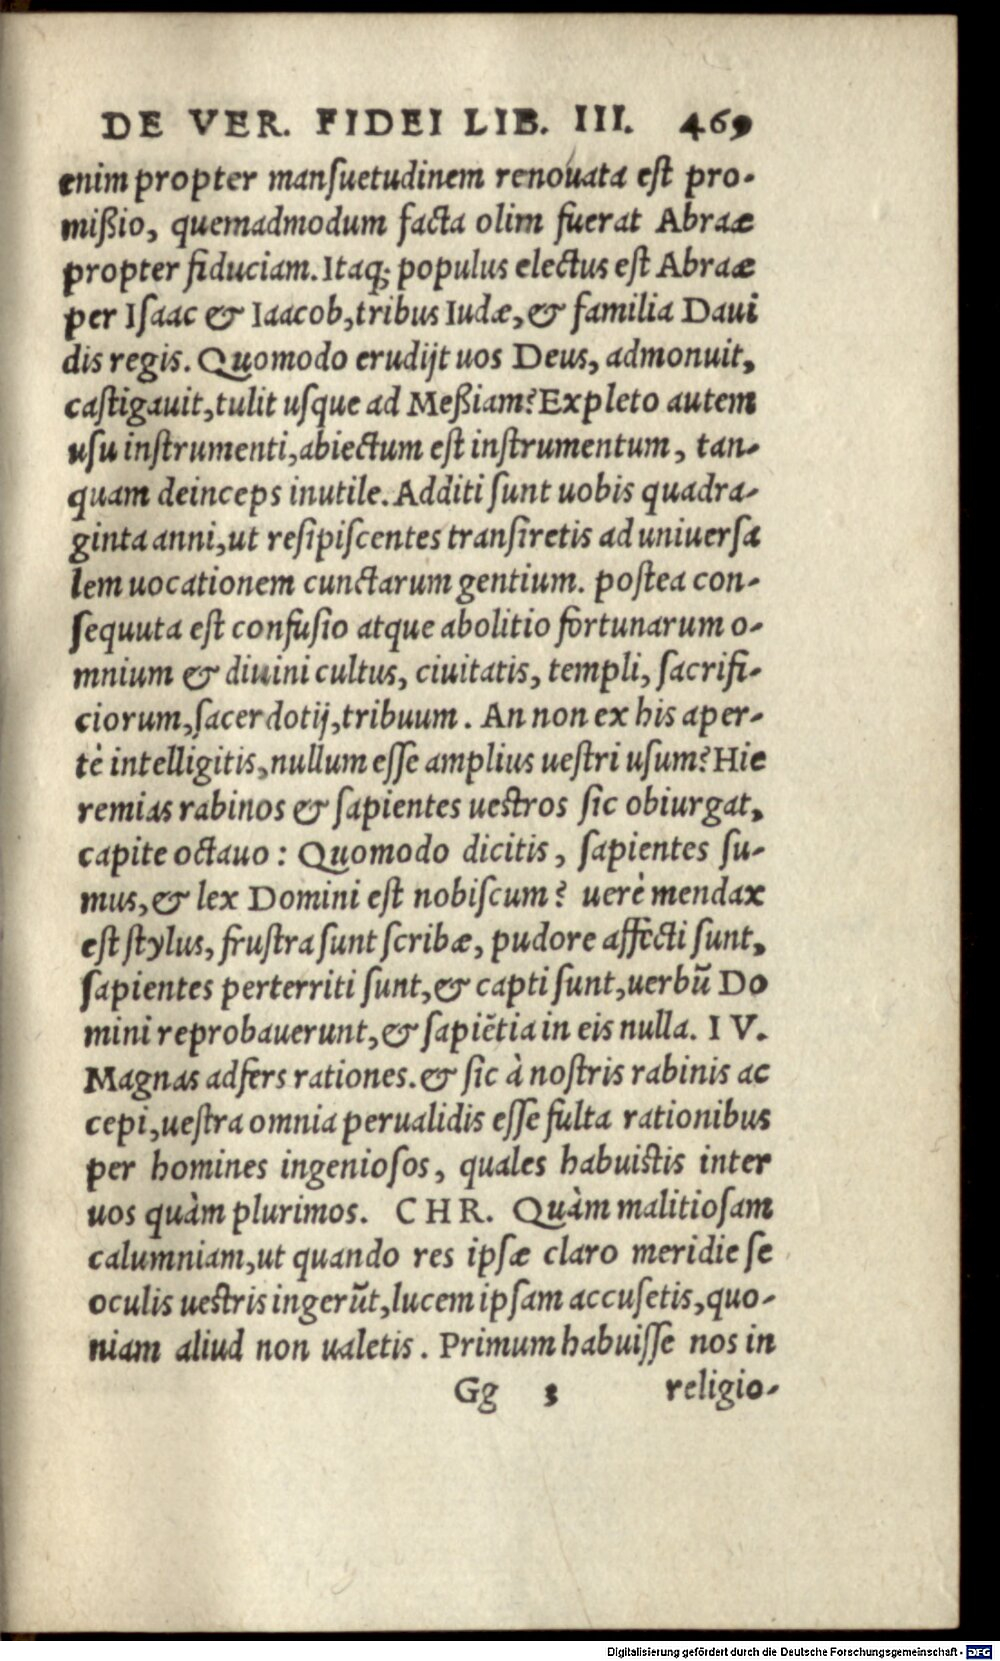 DE VER. FIDEI LIB. III. 469
enim propter manſuetudinem renouata eſt pro-
mißio, quemadmodum facta olim fuerat Abraæ
propter fiduciam. Itaq; populus electus est Abraæ
per Iſaac & Iaacob, tribus Iudæ, & familia Daui
dis regis. Quomodo erudijt uos Deus, admonuit,
caſtigauit, tulit uſque ad Meßiam? Expleto autem
uſu inſtrumenti, abiectum eſt inſtrumentum, tan-
quam deinceps inutile. Additi ſunt uobis quadra-
ginta anni, ut reſipiſcentes tranſiretis ad uniuerſa
lem uocationem cunctarum gentium. poſtea con-
ſequuta eſt confuſio atque abolitio fortunarum o-
mnium & diuini cultus, ciuitatis, templi, ſacrifi-
ciorum, ſacerdotij, tribuum. An non ex his aper-
tè intelligitis, nullum eſſe amplius ueſtri uſum? Hie
remias rabinos & ſapientes uestros ſic obiurgat,
capite octauo: Quomodo dicitis, ſapientes ſu-
mus, & lex Domini eſt nobiſcum? uerè mendax
eſt ſtylus, fruſtra ſunt ſcribæ, pudore affecti ſunt,
ſapientes perterriti ſunt, & capti ſunt, uerbũ Do
mini reprobauerunt, & ſapiẽtia in eis nulla. IV.
Magnas adfers rationes. & ſic à noſtris rabinis ac
cepi, ueſtra omnia perualidis eſſe fulta rationibus
per homines ingenioſos, quales habuistis inter
uos quàm plurimos. CHR. Quàm malitioſam
calumniam, ut quando res ipſæ claro meridie ſe
oculis uestris ingerũt, lucem ipſam accuſetis, quo-
niam aliud non ualetis. Primum habuiſſe nos in
Gg 3 religio-
Digitalisierung gefördert durch die Deutsche Forschungsgemeinschaft - DFG